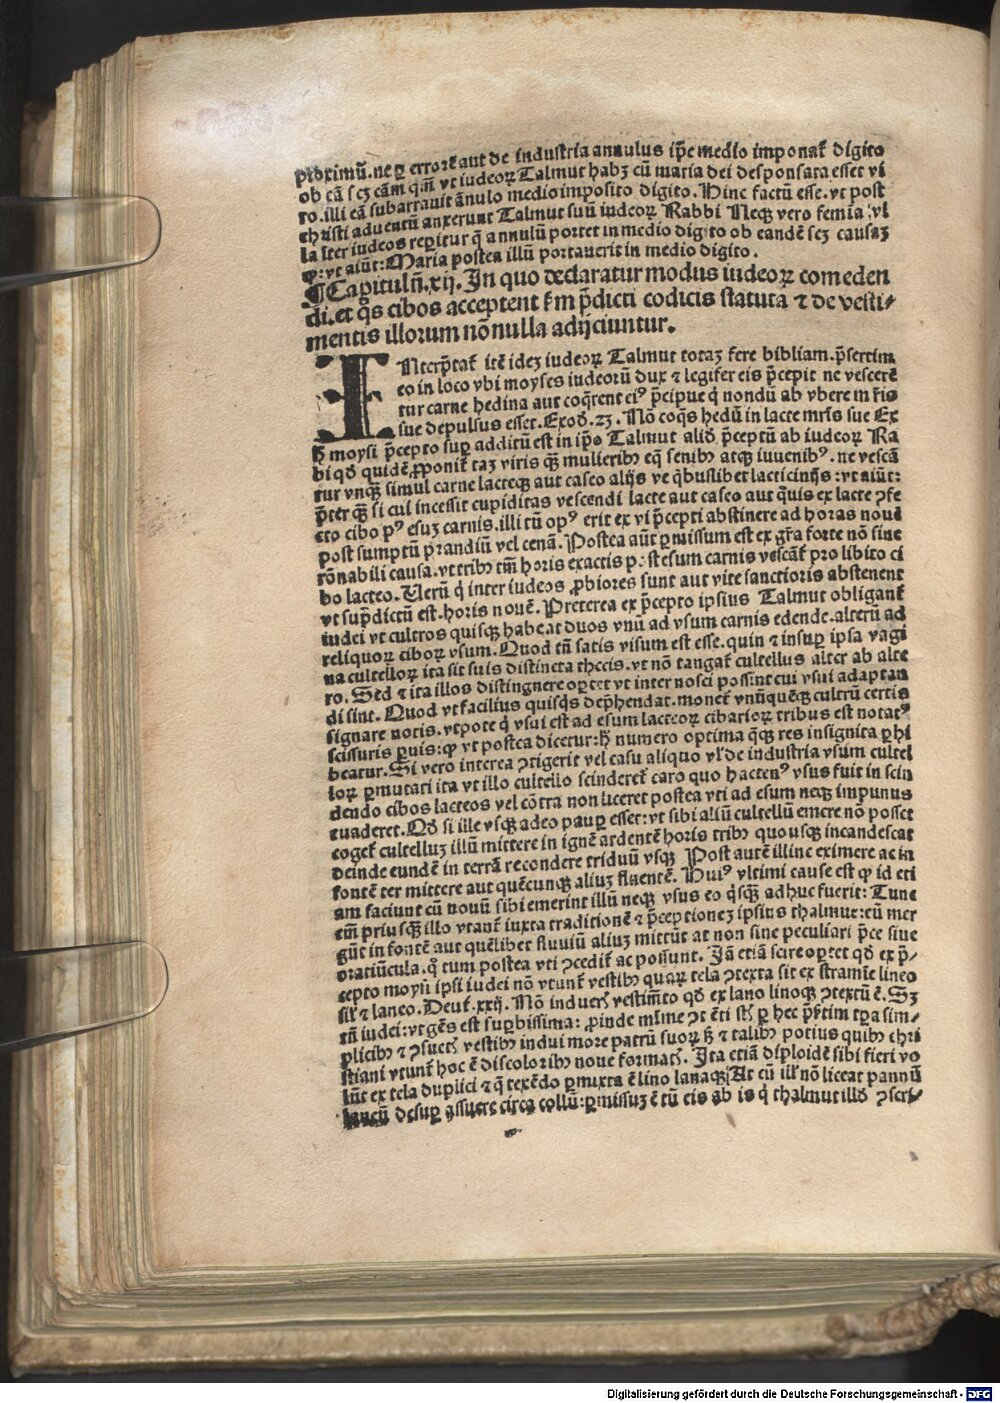 proximū. ne ꝑ errorē aut de industria annulus ip̄e medio imponat᷑ digito
ob cā scȝ cām qm̄ vt iudeoꝝ Talmut habȝ cū maria dei desponsata esset vi
ro. illi eā subarrauit ānulo medio imposito digito. Hinc factū esse. vt post
christi aduentū anxerunt Talmut suū iudeoꝝ Rabbi Neqꝫ vero femia vl
la īter iudeos reꝑitur q̄ annulū portet in medio digito ob eandē scȝ causaȝ
ꝙ: vt aiūt: Maria postea illū portauerit in medio digito.
¶ Capitulū. xij. In quo declaratur modus iudeoꝝ comeden
di. et q̄s cibos acceptent ẜm p̄dicti codicis statuta ⁊ de vesti⸗
mentis illorum nōnulla adijciuntur.
INterp̄tat᷑ itē ideȝ iudeoꝝ Talmut totaȝ fere bibliam. p̄sertim
eo in loco vbi moyses iudeorū dux ⁊ legifer eis p̄cepit ne vescerē
tur carne hedina aut coq̄rent eiꝰ p̄cipue q̇ nondū ab vbere m̄ris
sue depulsus esset. Exod. 23. Nō coq̄s hedū in lacte mr̄is sue Ex
hꝭ moysi p̄cepto suꝑ additū est in ip̄o Talmut aliđ p̄ceptū ab iudeoꝝ Ra
bi qđ quidē ꝓponit᷑ taȝ viris qꝫ̄ mulieribꝫ eq̄ senibꝫ atqꝫ iuuenibꝰ. ne vescā
tur vnqꝫ̄ simul carne lacteqꝫ aut caseo alijs ve q̇buslibet lacticinijs: vt aiūt:
p̄ter qꝫ̄ si cui incessit cupiditas vescendi lacte aut caseo aut q̇uis ex lacte ꝯfe
cto cibo pꝰ esuȝ carnis. illi tū opꝰ erit ex vi p̄cepti abstinere ad horas nouē
post sumptū prandiū vel cenā. Postea aūt ꝑmissum est ex gr̄a forte nō sine
rōnabili causa. vt tribꝫ tm̄ horis exactis post esum carnis vescāt᷑ pro libito ci
bo lacteo. Verū q̇ inter iudeos ꝓbiores sunt aut vite sanctioris abstenent
vt sup̄dictū est. horis nouē. Preterea ex p̄cepto ipsius Talmut obligant᷑
iudei vt cultros quisqꝫ habeat duos vnū ad vsum carnis edende. alterū ad
reliquoꝝ ciboꝝ vsum. Quod tn̄ satis visum est esse. quin ⁊ insuꝑ ipsa vagi
na cultelloꝝ ita sit suis distincta thecis. vt nō tangat᷑ cultellus alter ab alte
ro. Sed ⁊ ita illos distingnere oꝑtet vt inter nosci possint cui vsui adaptan
di sint. Quod vt facilius quisq̇s dep̄hendat. monet vnūquēqꝫ cultrū certis
signare notis. vtpote q̇ vsui est ad esum lacteoꝝ cibarioꝝ tribus est notatꝰ
scissuris ꝑuis: ꝙ vt postea dicetur: hꝭ numero optima q̄qꝫ res insignita ꝑhi
beatur. Si vero interea ꝯtigerit vel casu aliquo vl' de industria vsum cultel
loꝝ ꝑmutari ita vt illo cultello scinderet᷑ caro quo hactenꝰ vsus fuit in scin
dendo cibos lacteos vel cōtra non liceret postea vti ad esum neqꝫ impunus
euaderet. Qđ si ille vsqꝫ adeo pauꝑ esset: vt sibi aliū cultellū emere nō posset
coget᷑ cultelluȝ illū mittere in ignē ardentē horis tribꝫ quousqꝫ incandescat
deinde eundē in terrā recondere triduū vsqꝫ Post autē illinc eximere ac in
fontē ter mittere aut quēcunqꝫ aliuȝ fluentē. Huiꝰ vltimi cause est ꝙ id eti
am faciunt cū nouū sibi emerint illū neqꝫ vsus eo q̇sqꝫ̄ adhuc fuerit: Tunc
em̄ priusqꝫ̄ illo vtant᷑ iuxta traditionē ⁊ p̄ceptioneȝ ipsius thalmut: cū mer
gūt in fontē aut quēlibet fluuiū aliuȝ mittūt at non sine peculiari p̄ce siue
oratiūcula. q̄ tum postea vti ꝯcedit᷑ ac possunt. Jā etiā scire oꝑtet qđ ex p̄⸗
cepto moysi ipsi iudei nō vtunt᷑ vestibꝫ quaꝝ tela ꝯtexta sit ex stramīe lineo
sil' ⁊ laneo. Deut᷑. xxij. Nō induerꝭ vestim̄to qđ ex lano linoqꝫ ꝯtextū ē. Sȝ
tn̄ iudei: vt gēs est suꝑbissima: ꝓinde
ꝑlicibꝫ ⁊ ꝯsuetꝭ vestibꝫ indui more patrū suoꝝ hꝭ ⁊ talibꝫ potius quibꝫ chri
stiani vtunt᷑ hoc ē discoloribꝫ noue formatꝭ. Ita etiā diploidē sibi fieri vo
lūt ex tela duplici ⁊ q̄ texēdo ꝑmixta ē lino lanaqꝫ At cū ill' nō liceat pannū
laneū desuꝑ assuere circa collū: ꝑmissuȝ ē tū eis ab is q̇ thalmut illđ ꝯscri⸗
Digitalisierung gefördert durch die Deutsche Forschungsgemeinschaft - DFG